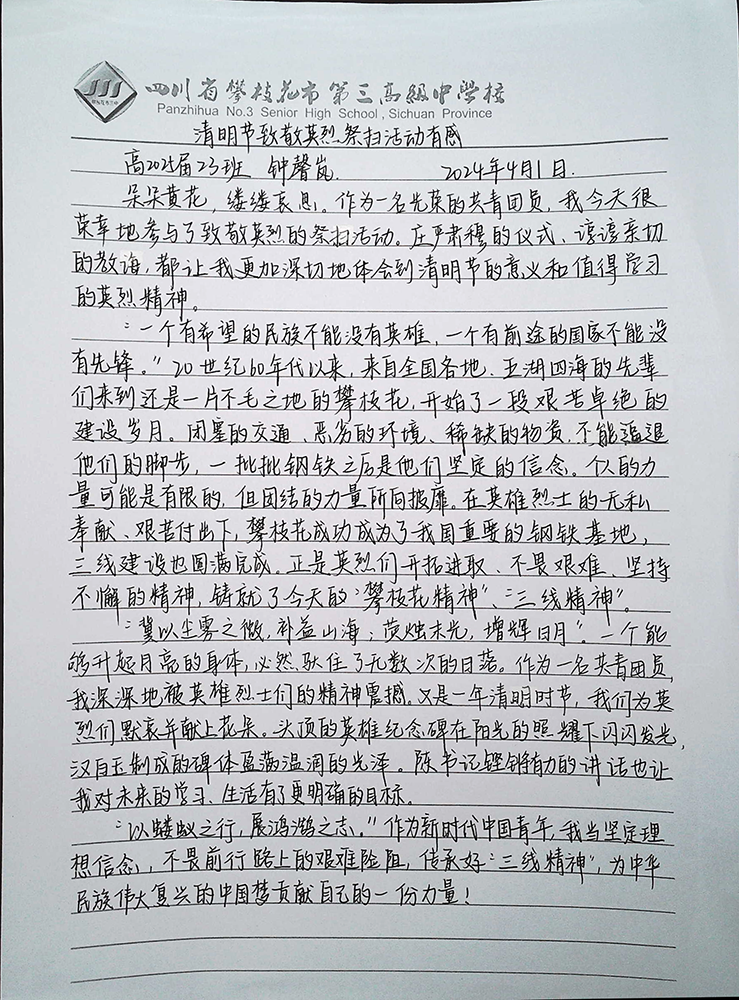 四川省攀枝花市第三高级中学校
Panzhihua No.3 Senior High School, Sichuan Province
清明节致敬英烈祭扫活动有感
高2025届23班 钟馨岚 2024年4月1日.
朵朵黄花，缕缕哀思。作为一名光荣的共青团员，我今天很
荣幸地参与了致敬英烈的祭扫活动。庄严肃穆的仪式、谆谆亲切
的教诲，都让我更加深切地体会到清明节的意义和值得学习
的英烈精神。
“一个有希望的民族不能没有英雄，一个有前途的国家不能没
有先锋。”20世纪60年代以来，来自全国各地、五湖四海的先辈
们来到还是一片不毛之地的攀枝花，开始了一段艰苦卓绝的
建设岁月。闭塞的交通、恶劣的环境、稀缺的物资，不能逼退
他们的脚步，一批批钢铁之后是他们坚定的信念。个人的力
量可能是有限的，但团结的力量所向披靡。在英雄烈士的无私
奉献、艰苦付出下，攀枝花成功成为了我国重要的钢铁基地，
三线建设也圆满完成。正是英烈们开拓进取、不畏艰难、坚持
不懈的精神，铸就了今天的“攀枝花精神”、“三线精神”。
“冀以尘雾之微，补益山海；荧烛末光，增辉日月”。一个能
够升起月亮的身体，必然驮住了无数次的日落。作为一名共青团员，
我深深地被英雄烈士们的精神震撼。又是一年清明时节，我们为英
烈们默哀并献上花朵。头顶的英雄纪念碑在阳光的照耀下闪闪发光，
汉白玉制成的碑体盈满温润的光泽。陈书记铿锵有力的讲话也让
我对未来的学习、生活有了更明确的目标。
“以蝼蚁之行，展鸿鹄之志。”作为新时代中国青年，我当坚定理
想信念，不畏前行路上的艰难险阻，传承好“三线精神”，为中华
民族伟大复兴的中国梦贡献自己的一份力量！